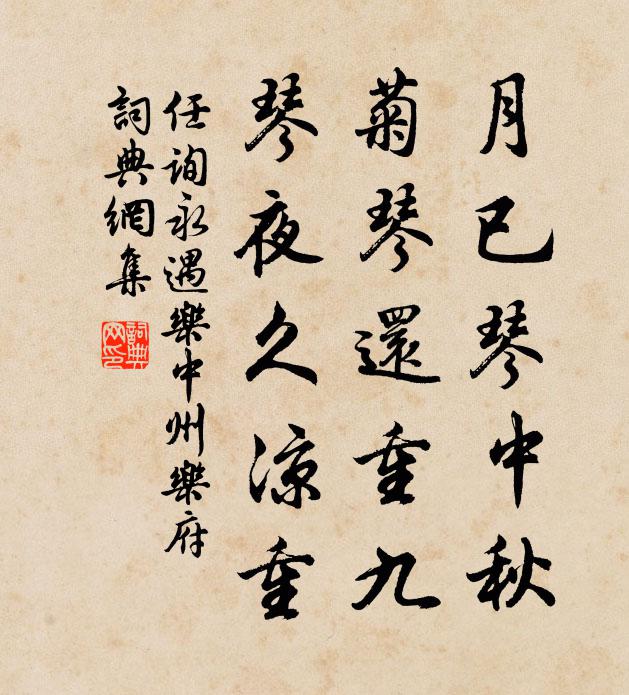 月已琴中秋
菊琴還重九
琴夜久涼重
任詢永遇樂中州樂府
詞典網集
詞典
网印